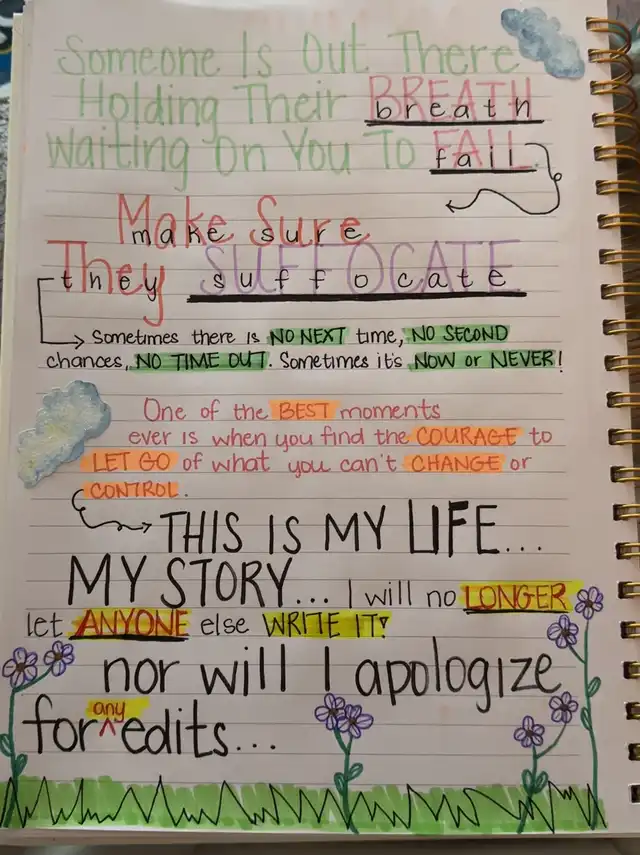 Someone Is Out There
Holding Their BREATH breath
Waiting On You To FAIL. fail
Make Sure make sure
They SUFFOCATE they suffocate
Sometimes there is NO NEXT time, NO SECOND
chances, NO TIME OUT. Sometimes it's NOW or NEVER!
One of the BEST moments
ever is when you find the COURAGE to
LET GO of what you can't CHANGE or
CONTROL.
THIS IS MY LIFE...
MY STORY... I will no LONGER
let ANYONE else WRITE IT!
nor will I apologize
for any edits...